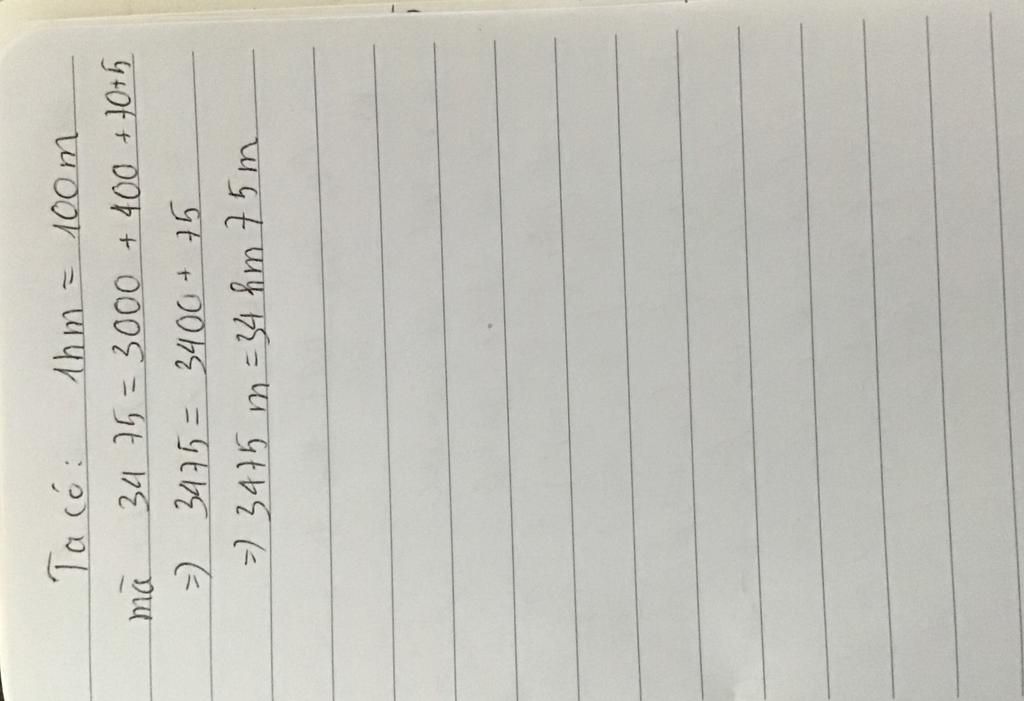 Ta có: 1hm = 100m
mà 3475 = 3000 + 400 + 70+5
=) 3475 = 3400 + 75
=) 3475 m = 34 hm 75 m